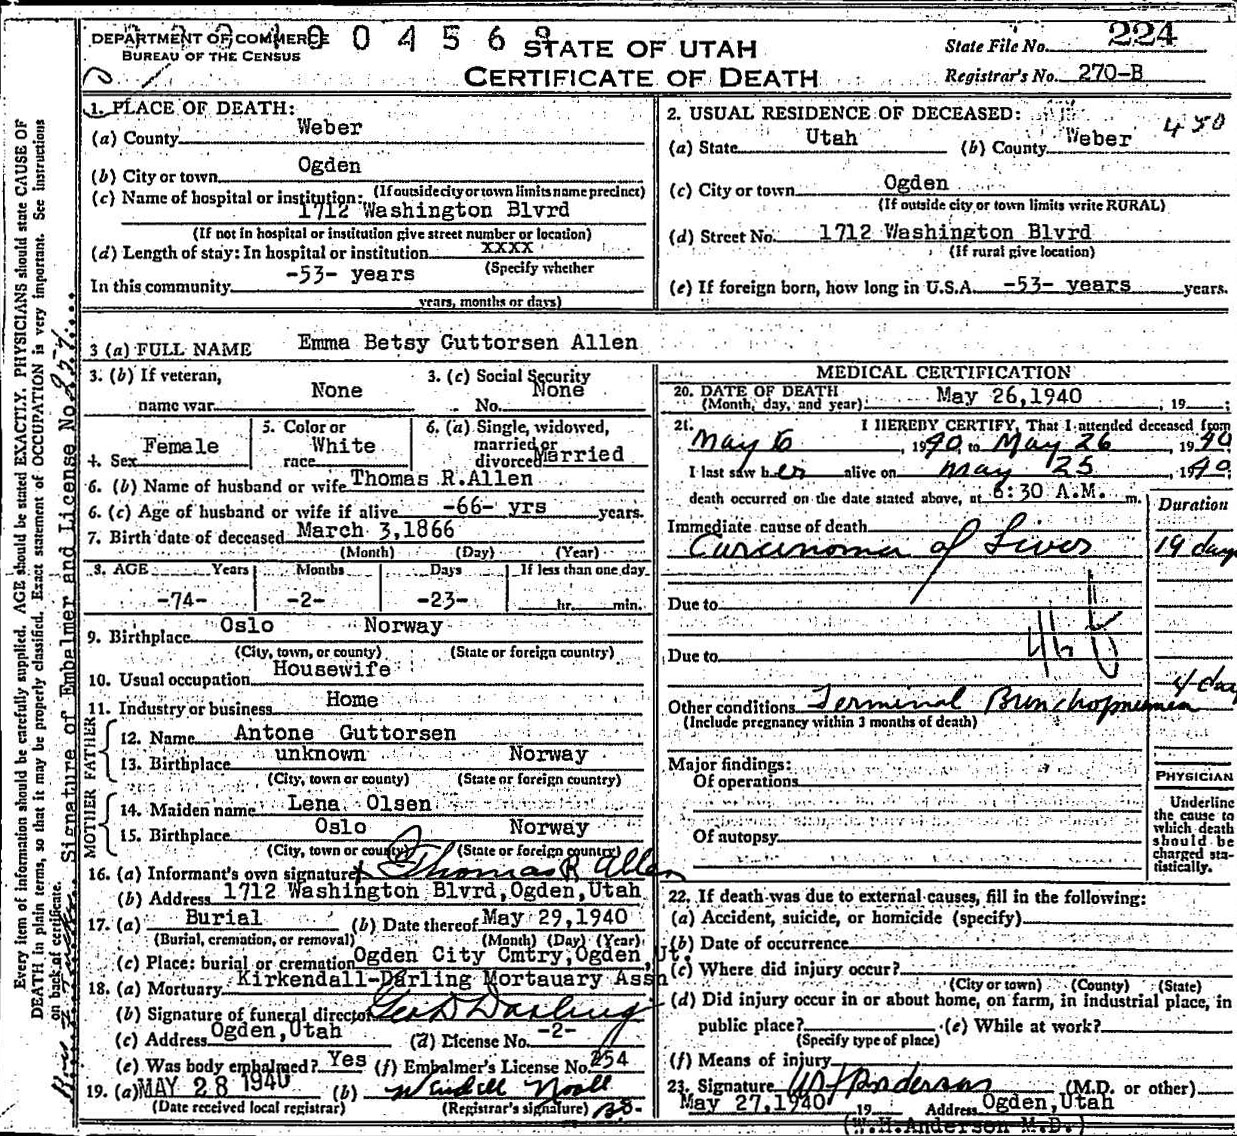 DEPARTMENT OF COMMERCE
BUREAU OF THE CENSUS
STATE OF UTAH
CERTIFICATE OF DEATH
State File No. 224
Registrar's No. 270-B
1. PLACE OF DEATH:
(a) County Weber
(b) City or town Ogden
(If outside city or town limits name precinct)
(c) Name of hospital or institution:
1712 Washington Blvrd
(If not in hospital or institution give street number or location)
(d) Length of stay: In hospital or institution xxxx
(Specify whether
In this community -53- years
years, months or days)
2. USUAL RESIDENCE OF DECEASED:
450
(a) State Utah (b) County Weber
(c) City or town Ogden
(If outside city or town limits write RURAL)
(d) Street No. 1712 Washington Blvrd
(If rural give location)
(e) If foreign born, how long in U.S.A. -53- years years.
3 (a) FULL NAME Emma Betsy Guttorsen Allen
3. (b) If veteran, name war None
3. (c) Social Security No. None
4. Sex Female
5. Color or race White
6. (a) Single, widowed, married or divorced Married
6. (b) Name of husband or wife Thomas R.Allen
6. (c) Age of husband or wife if alive -66- yrs years.
7. Birth date of deceased March 3,1866
(Month) (Day) (Year)
8. AGE Years Months Days If less than one day
-74- -2- -23- hr. min.
9. Birthplace Oslo Norway
(City, town, or county) (State or foreign country)
10. Usual occupation Housewife
11. Industry or business Home
FATHER
12. Name Antone Guttorsen
13. Birthplace unknown Norway
(City, town or county) (State or foreign country)
MOTHER
14. Maiden name Lena Olsen
15. Birthplace Oslo Norway
(City, town or county) (State or foreign country)
16. (a) Informant's own signature x Thomas R Allen
(b) Address 1712 Washington Blvrd,Ogden,Utah
17. (a) Burial (b) Date thereof May 29,1940
(Burial, cremation, or removal) (Month) (Day) (Year)
(c) Place: burial or cremation Ogden City Cmtry,Ogden,Ut.
18. (a) Mortuary Kirkendall-Darling Mortauary Assn
(b) Signature of funeral director Geo D Darling
(c) Address Ogden,Utah (d) License No. -2-
(e) Was body embalmed? Yes (f) Embalmer's License No. 254
19. (a) MAY 28 1940 (b)
(Date received local registrar) (Registrar's signature)
MEDICAL CERTIFICATION
20. DATE OF DEATH
(Month, day, and year) May 26,1940, 19
21. I HEREBY CERTIFY, That I attended deceased from
May 6 1940 to May 26 1940
I last saw her alive on May 25 1940
death occurred on the date stated above, at 6:30 A.M. m.
Duration
Immediate cause of death
Carcinoma of Liver 19 days
Due to
46
Due to
Other conditions Terminal Bronchopneumonia 4 day
(Include pregnancy within 3 months of death)
Major findings:
Of operations
Of autopsy
PHYSICIAN
Underline
the cause to
which death
should be
charged sta-
tistically.
22. If death was due to external causes, fill in the following:
(a) Accident, suicide, or homicide (specify)
(b) Date of occurrence
(c) Where did injury occur?
(City or town) (County) (State)
(d) Did injury occur in or about home, on farm, in industrial place, in
public place? (e) While at work?
(Specify type of place)
(f) Means of injury
23. Signature WH Anderson (M.D. or other)
May 27,1940 19 Address Ogden,Utah
(W.H.Anderson M.D.)
Every item of information should be carefully supplied. AGE should be stated EXACTLY. PHYSICIANS should state CAUSE OF
DEATH in plain terms, so that it may be properly classified. Exact statement of OCCUPATION is very important. See instructions
on back of certificate.
Signature of Embalmer and License No.